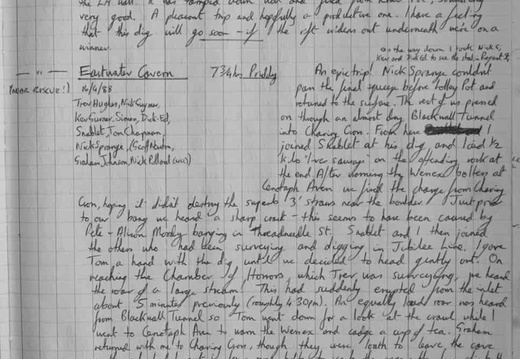 very good. A pleasant trip and hopefully a productive one. I have a feeling
that this dig will go soon - if the rift widens out underneath we're on a
winner.
on the way down I took Nick G,
Kev and
Eastwater Cavern 7 3/4 hrs Priddy
16/4/88
Trev Hughes, Nick Gymer,
Kev Gurner, Simon,
Snablet, Tom Chapman,
Nick Sprange, (Geoff Newton,
Graham Johnson, Nick Pollard (WCC))
An epic trip! Nick Sprange couldn't
pass the final squeeze before Lolly Pot and
returned to the surface. The rest of us pressed
on through an almost dry Blackwall Tunnel
into Charing Cross. From here I
joined Snablet at his dig and I laid 1/2
kilo "liver sausage" on the offending rock at
the end. After warning the Wessex bolters at
Cenotaph Aven we fired the charge from Charing
Cross, hoping it didn't destroy the superb 3' straws near the boulder. Just prior
to our bang we heard a sharp crack - this seems to have been caused by
Pete + Alison Moody banging in Threadneedle St. Snablet and I then joined
the others who had been surveying and digging in Jubilee Line. I gave
Tom a hand with the dig until we decided to head gently out. On
reaching the Chamber of Horrors, which Trev was surveying, we heard
the roar of a large stream! This had suddenly erupted from the inlet
about 5 minutes previously (roughly 4.30pm). An equally loud roar was heard
from Blackwall Tunnel so Tom went down for a look at the crawl while I
went to Cenotaph Aven to warn the Wessex and cadge a cup of tea. Graham
returned with me to Charing Cross, though they were loath to leave the cave